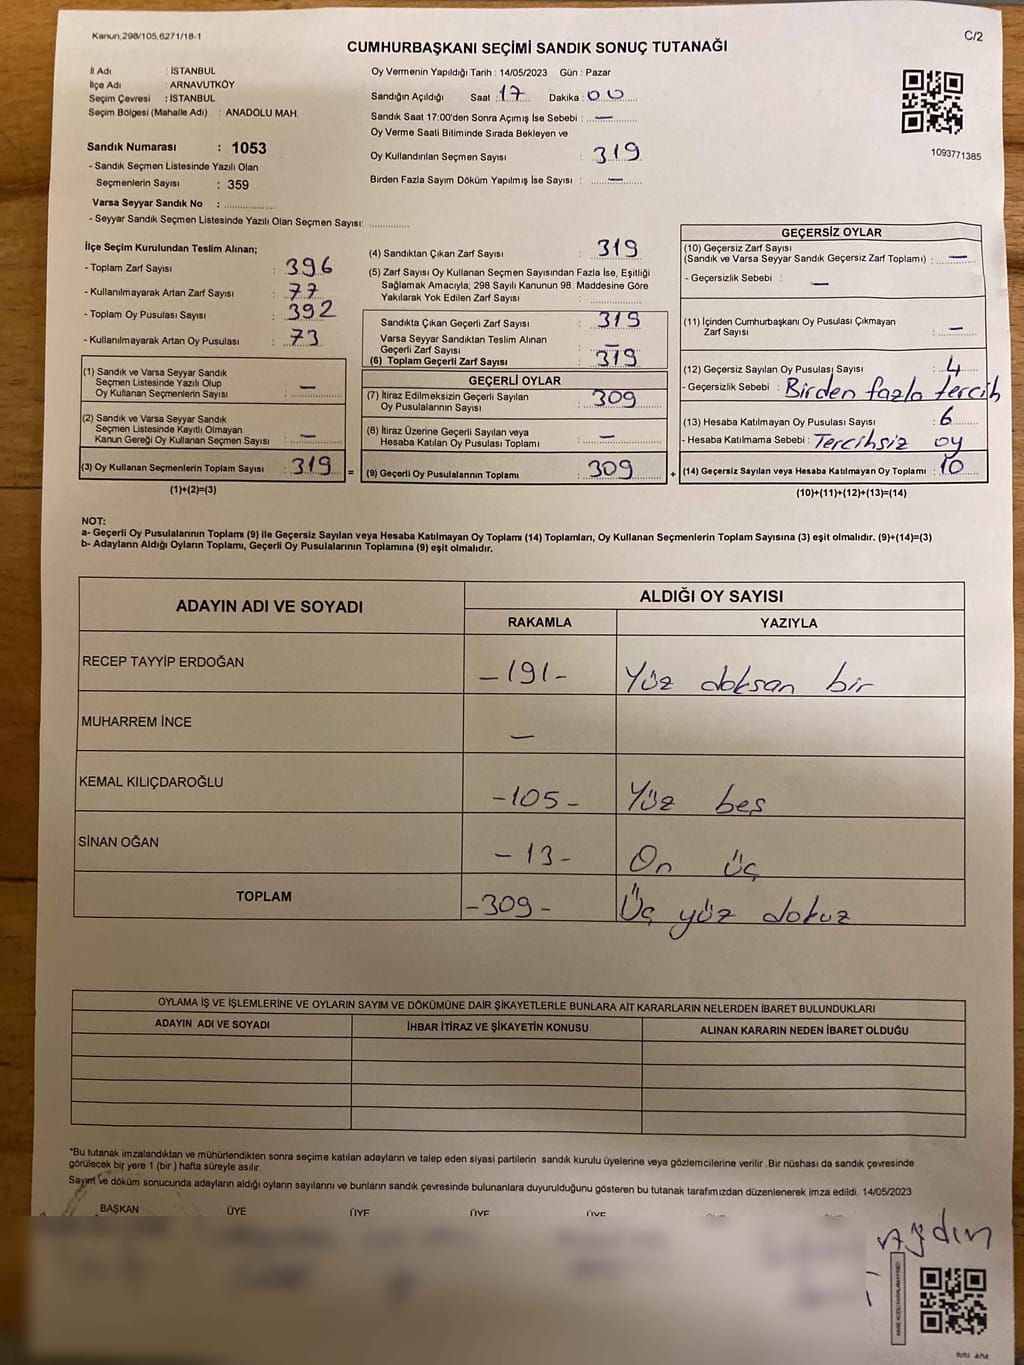 Kanun,298/105,6271/18-1
C/2
CUMHURBAŞKANI SEÇİMİ SANDIK SONUÇ TUTANAĞI
İl Adı : İSTANBUL
İlçe Adı : ARNAVUTKÖY
Seçim Çevresi : İSTANBUL
Seçim Bölgesi (Mahalle Adı) : ANADOLU MAH.
Oy Vermenin Yapıldığı Tarih : 14/05/2023 Gün : Pazar
Sandığın Açıldığı Saat : 17 Dakika : 00
Sandık Saat 17:00'den Sonra Açımış İse Sebebi : —
Oy Verme Saati Bitiminde Sırada Bekleyen ve
Oy Kullandırılan Seçmen Sayısı : 319
Birden Fazla Sayım Döküm Yapılmış İse Sayısı : —
1093771385
Sandık Numarası : 1053
- Sandık Seçmen Listesinde Yazılı Olan
Seçmenlerin Sayısı : 359
Varsa Seyyar Sandık No :
- Seyyar Sandık Seçmen Listesinde Yazılı Olan Seçmen Sayısı:
İlçe Seçim Kurulundan Teslim Alınan;
- Toplam Zarf Sayısı : 396
- Kullanılmayarak Artan Zarf Sayısı : 77
- Toplam Oy Pusulası Sayısı : 392
- Kullanılmayarak Artan Oy Pusulası : 73
(1) Sandık ve Varsa Seyyar Sandık
Seçmen Listesinde Yazılı Olup
Oy Kullanan Seçmenlerin Sayısı : —
(2) Sandık ve Varsa Seyyar Sandık
Seçmen Listesinde Kayıtlı Olmayan
Kanun Gereği Oy Kullanan Seçmen Sayısı : —
(3) Oy Kullanan Seçmenlerin Toplam Sayısı : 319 =
(1)+(2)=(3)
(4) Sandıktan Çıkan Zarf Sayısı : 319
(5) Zarf Sayısı Oy Kullanan Seçmen Sayısından Fazla İse, Eşitliği
Sağlamak Amacıyla; 298 Sayılı Kanunun 98. Maddesine Göre
Yakılarak Yok Edilen Zarf Sayısı :
Sandıkta Çıkan Geçerli Zarf Sayısı : 319
Varsa Seyyar Sandıktan Teslim Alınan
Geçerli Zarf Sayısı : —
(6) Toplam Geçerli Zarf Sayısı : 319
GEÇERLİ OYLAR
(7) İtiraz Edilmeksizin Geçerli Sayılan
Oy Pusulalarının Sayısı : 309
(8) İtiraz Üzerine Geçerli Sayılan veya
Hesaba Katılan Oy Pusulası Toplamı : —
(9) Geçerli Oy Pusulalarının Toplamı : 309 +
GEÇERSİZ OYLAR
(10) Geçersiz Zarf Sayısı
(Sandık ve Varsa Seyyar Sandık Geçersiz Zarf Toplamı) : —
- Geçersizlik Sebebi : —
(11) İçinden Cumhurbaşkanı Oy Pusulası Çıkmayan
Zarf Sayısı : —
(12) Geçersiz Sayılan Oy Pusulası Sayısı : 4
- Geçersizlik Sebebi : Birden fazla tercih
(13) Hesaba Katılmayan Oy Pusulası Sayısı : 6
- Hesaba Katılmama Sebebi : Tercihsiz oy
(14) Geçersiz Sayılan veya Hesaba Katılmayan Oy Toplamı : 10
(10)+(11)+(12)+(13)=(14)
NOT:
a- Geçerli Oy Pusulalarının Toplamı (9) ile Geçersiz Sayılan veya Hesaba Katılmayan Oy Toplamı (14) Toplamları, Oy Kullanan Seçmenlerin Toplam Sayısına (3) eşit olmalıdır. (9)+(14)=(3)
b- Adayların Aldığı Oyların Toplamı, Geçerli Oy Pusulalarının Toplamına (9) eşit olmalıdır.
ADAYIN ADI VE SOYADI
ALDIĞI OY SAYISI
RAKAMLA YAZIYLA
RECEP TAYYİP ERDOĞAN -191- Yüz doksan bir
MUHARREM İNCE —
KEMAL KILIÇDAROĞLU -105- Yüz beş
SİNAN OĞAN -13- On üç
TOPLAM -309- Üç yüz dokuz
OYLAMA İŞ VE İŞLEMLERİNE VE OYLARIN SAYIM VE DÖKÜMÜNE DAİR ŞİKAYETLERLE BUNLARA AİT KARARLARIN NELERDEN İBARET BULUNDUKLARI
ADAYIN ADI VE SOYADI İHBAR İTİRAZ VE ŞİKAYETİN KONUSU ALINAN KARARIN NEDEN İBARET OLDUĞU
*Bu tutanak imzalandıktan ve mühürlendikten sonra seçime katılan adayların ve talep eden siyasi partilerin sandık kurulu üyelerine veya gözlemcilerine verilir .Bir nüshası da sandık çevresinde
görülecek bir yere 1 (bir ) hafta süreyle asılır.
Sayım ve döküm sonucunda adayların aldığı oyların sayılarını ve bunların sandık çevresinde bulunanlara duyurulduğunu gösteren bu tutanak tarafımızdan düzenlenerek imza edildi. 14/05/2023
BAŞKAN ÜYE ÜYE ÜYE ÜYE